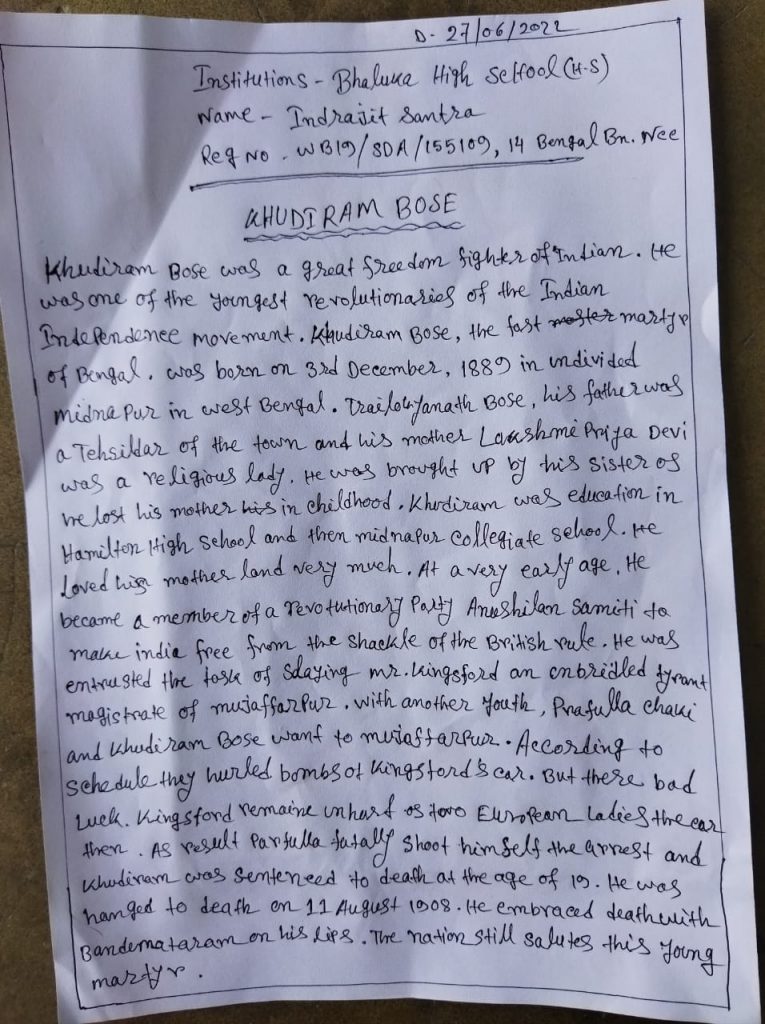 D- 27/06/2022
Institutions - Bhaluka High School (H-S)
Name - Indrajit Santra
Reg No - WB19/SDA/155109, 14 Bengal Bn. Ncc
KHUDIRAM BOSE
Khudiram Bose was a great freedom fighter of Indian. He
was one of the youngest revolutionaries of the Indian
Independence movement. Khudiram Bose, the fast master martyr
of Bengal. was born on 3rd December, 1889 in undivided
midnapur in west Bengal. Trailokyanath Bose, his father was
a Tehsildar of the town and his mother Lakshmi Priya Devi
was a religious lady. He was brought up by his sister as
he lost his mother his in childhood. Khudiram was education in
Hamilton High School and then midnapur collegiate school. He
loved his mother land very much. At a very early age, He
became a member of a revolutionary Party Anushilan Samiti to
make india free from the shackle of the British rule. He was
entrusted the task of Slaying mr. Kingsford an unbridled tyrant
magistrate of mujaffarpur. with another youth, Prafulla chaki
and Khudiram Bose want to mujaffarpur. According to
schedule they hurled bombs at Kingsford's car. But there bad
luck. Kingsford remaine unhurt as two European Ladies the car
then. As result Parfulla fatally shoot himself the arrest and
Khudiram was sentenced to death at the age of 19. He was
hanged to death on 11 August 1908. He embraced death with
Bandemataram on his lips. The nation still salutes this young
martyr.